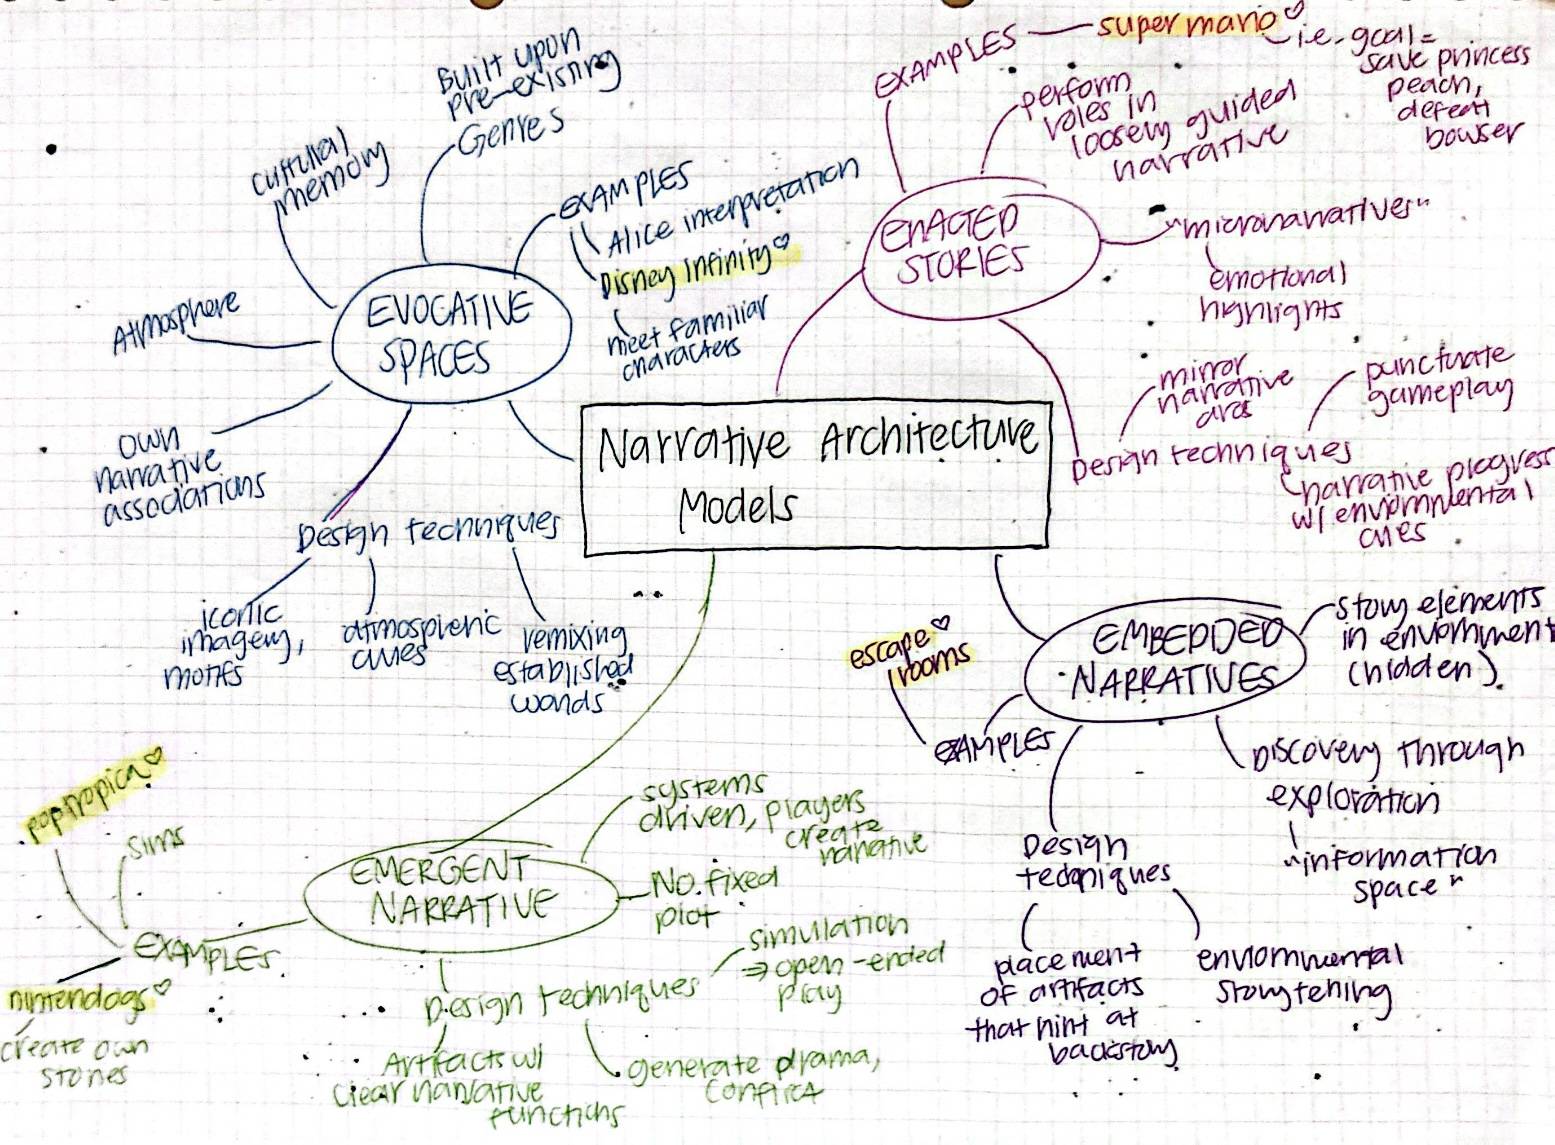 Narrative Architecture
Models
EVOCATIVE
SPACES
Built upon
pre-existing
Genres
cultural
memory
Atmosphere
own
narrative
associations
EXAMPLES
Alice interpretation
Disney Infinity
meet familiar
characters
Design techniques
iconic
imagery,
motifs
atmospheric
cues
remixing
established
worlds
ENACTED
STORIES
EXAMPLES
super mario
i.e. goal =
save princess
peach,
defeat
bowser
perform
roles in
loosely guided
narrative
"micronarratives"
emotional
highlights
Design techniques
mirror
narrative
arcs
punctuate
gameplay
narrative progress
w/ environmental
cues
EMBEDDED
NARRATIVES
story elements
in environment
(hidden)
Discovery through
exploration
"information
space"
EXAMPLES
escape
rooms
Design
techniques
placement
of artifacts
that hint at
backstory
environmental
storytelling
EMERGENT
NARRATIVE
systems
driven, players
create
narrative
No fixed
plot
EXAMPLES
poptropica
Sims
nintendogs
create own
stories
Design techniques
simulation
⇒ open-ended
play
Artifacts w/
clear narrative
functions
generate drama,
conflict